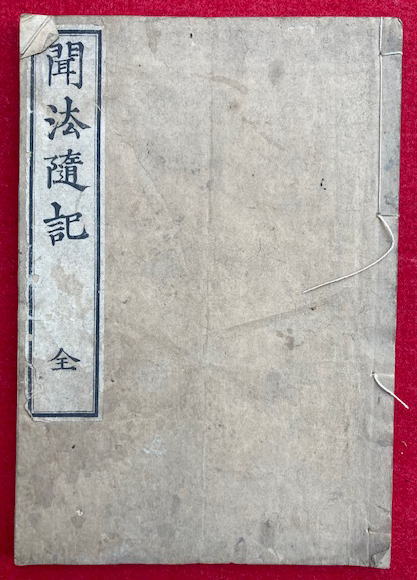 聞法隨記 全